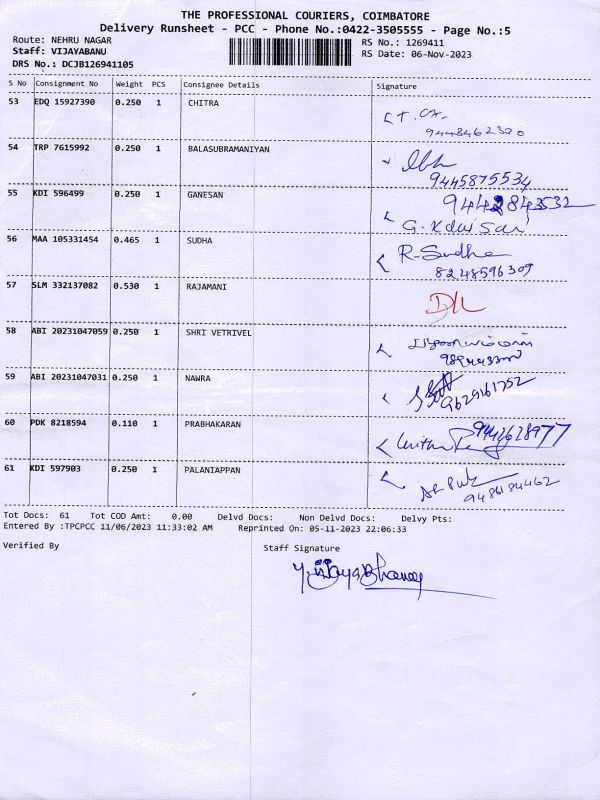 THE PROFESSIONAL COURIERS, COIMBATORE
Delivery Runsheet - PCC - Phone No.:0422-3505555 - Page No.:5
Route: NEHRU NAGAR RS No.: 1269411
Staff: VIJAYABANU RS Date: 06-Nov-2023
DRS No.: DCJB126941105
S No Consignment No Weight PCS Consignee Details Signature
53 EDQ 15927390 0.250 1 CHITRA
54 TRP 7615992 0.250 1 BALASUBRAMANIYAN
9445875534
55 KDI 596499 0.250 1 GANESAN
9442843532
56 MAA 105331454 0.465 1 SUDHA R-Sudha
8248596309
57 SLM 332137082 0.530 1 RAJAMANI D/L
58 ABI 20231047059 0.250 1 SHRI VETRIVEL
59 ABI 20231047031 0.250 1 NAWRA
9629161752
60 PDK 8218594 0.110 1 PRABHAKARAN
9442628977
61 KDI 597903 0.250 1 PALANIAPPAN
9486184462
Tot Docs: 61 Tot COD Amt: 0.00 Delvd Docs: Non Delvd Docs: Delvy Pts:
Entered By :TPCPCC 11/06/2023 11:33:02 AM Reprinted On: 05-11-2023 22:06:33
Verified By Staff Signature